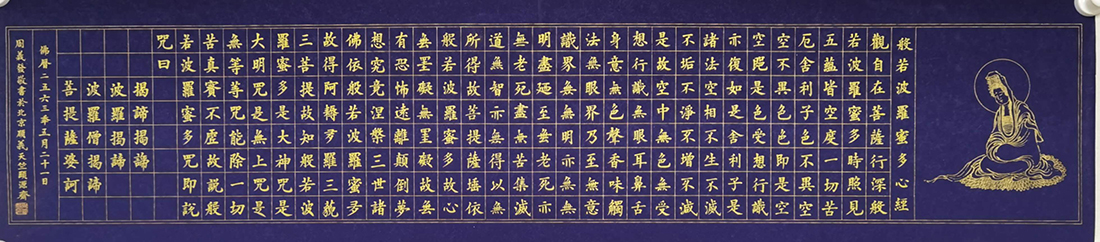 般若波羅蜜多心經
觀自在菩薩行深般
若波羅蜜多時照見
五蘊皆空度一切苦
厄舍利子色不異空
空不異色色即是空
空即是色受想行識
亦復如是舍利子是
諸法空相不生不滅
不垢不淨不增不減
是故空中無色無受
想行識無眼耳鼻舌
身意無色聲香味觸
法無眼界乃至無意
識界無無明亦無無
明盡乃至無老死亦
無老死盡無苦集滅
道無智亦無得以無
所得故菩提薩埵依
般若波羅蜜多故心
無罣礙無罣礙故無
有恐怖遠離顛倒夢
想究竟涅槃三世諸
佛依般若波羅蜜多
故得阿耨多羅三藐
三菩提故知般若波
羅蜜多是大神咒是
大明咒是無上咒是
無等等咒能除一切
苦真實不虛故說般
若波羅蜜多咒即說
咒曰
揭諦揭諦
波羅揭諦
波羅僧揭諦
菩提薩婆訶
佛曆二五六三年三月二十一日
周義發敬書於北京順義天竺頤源齋